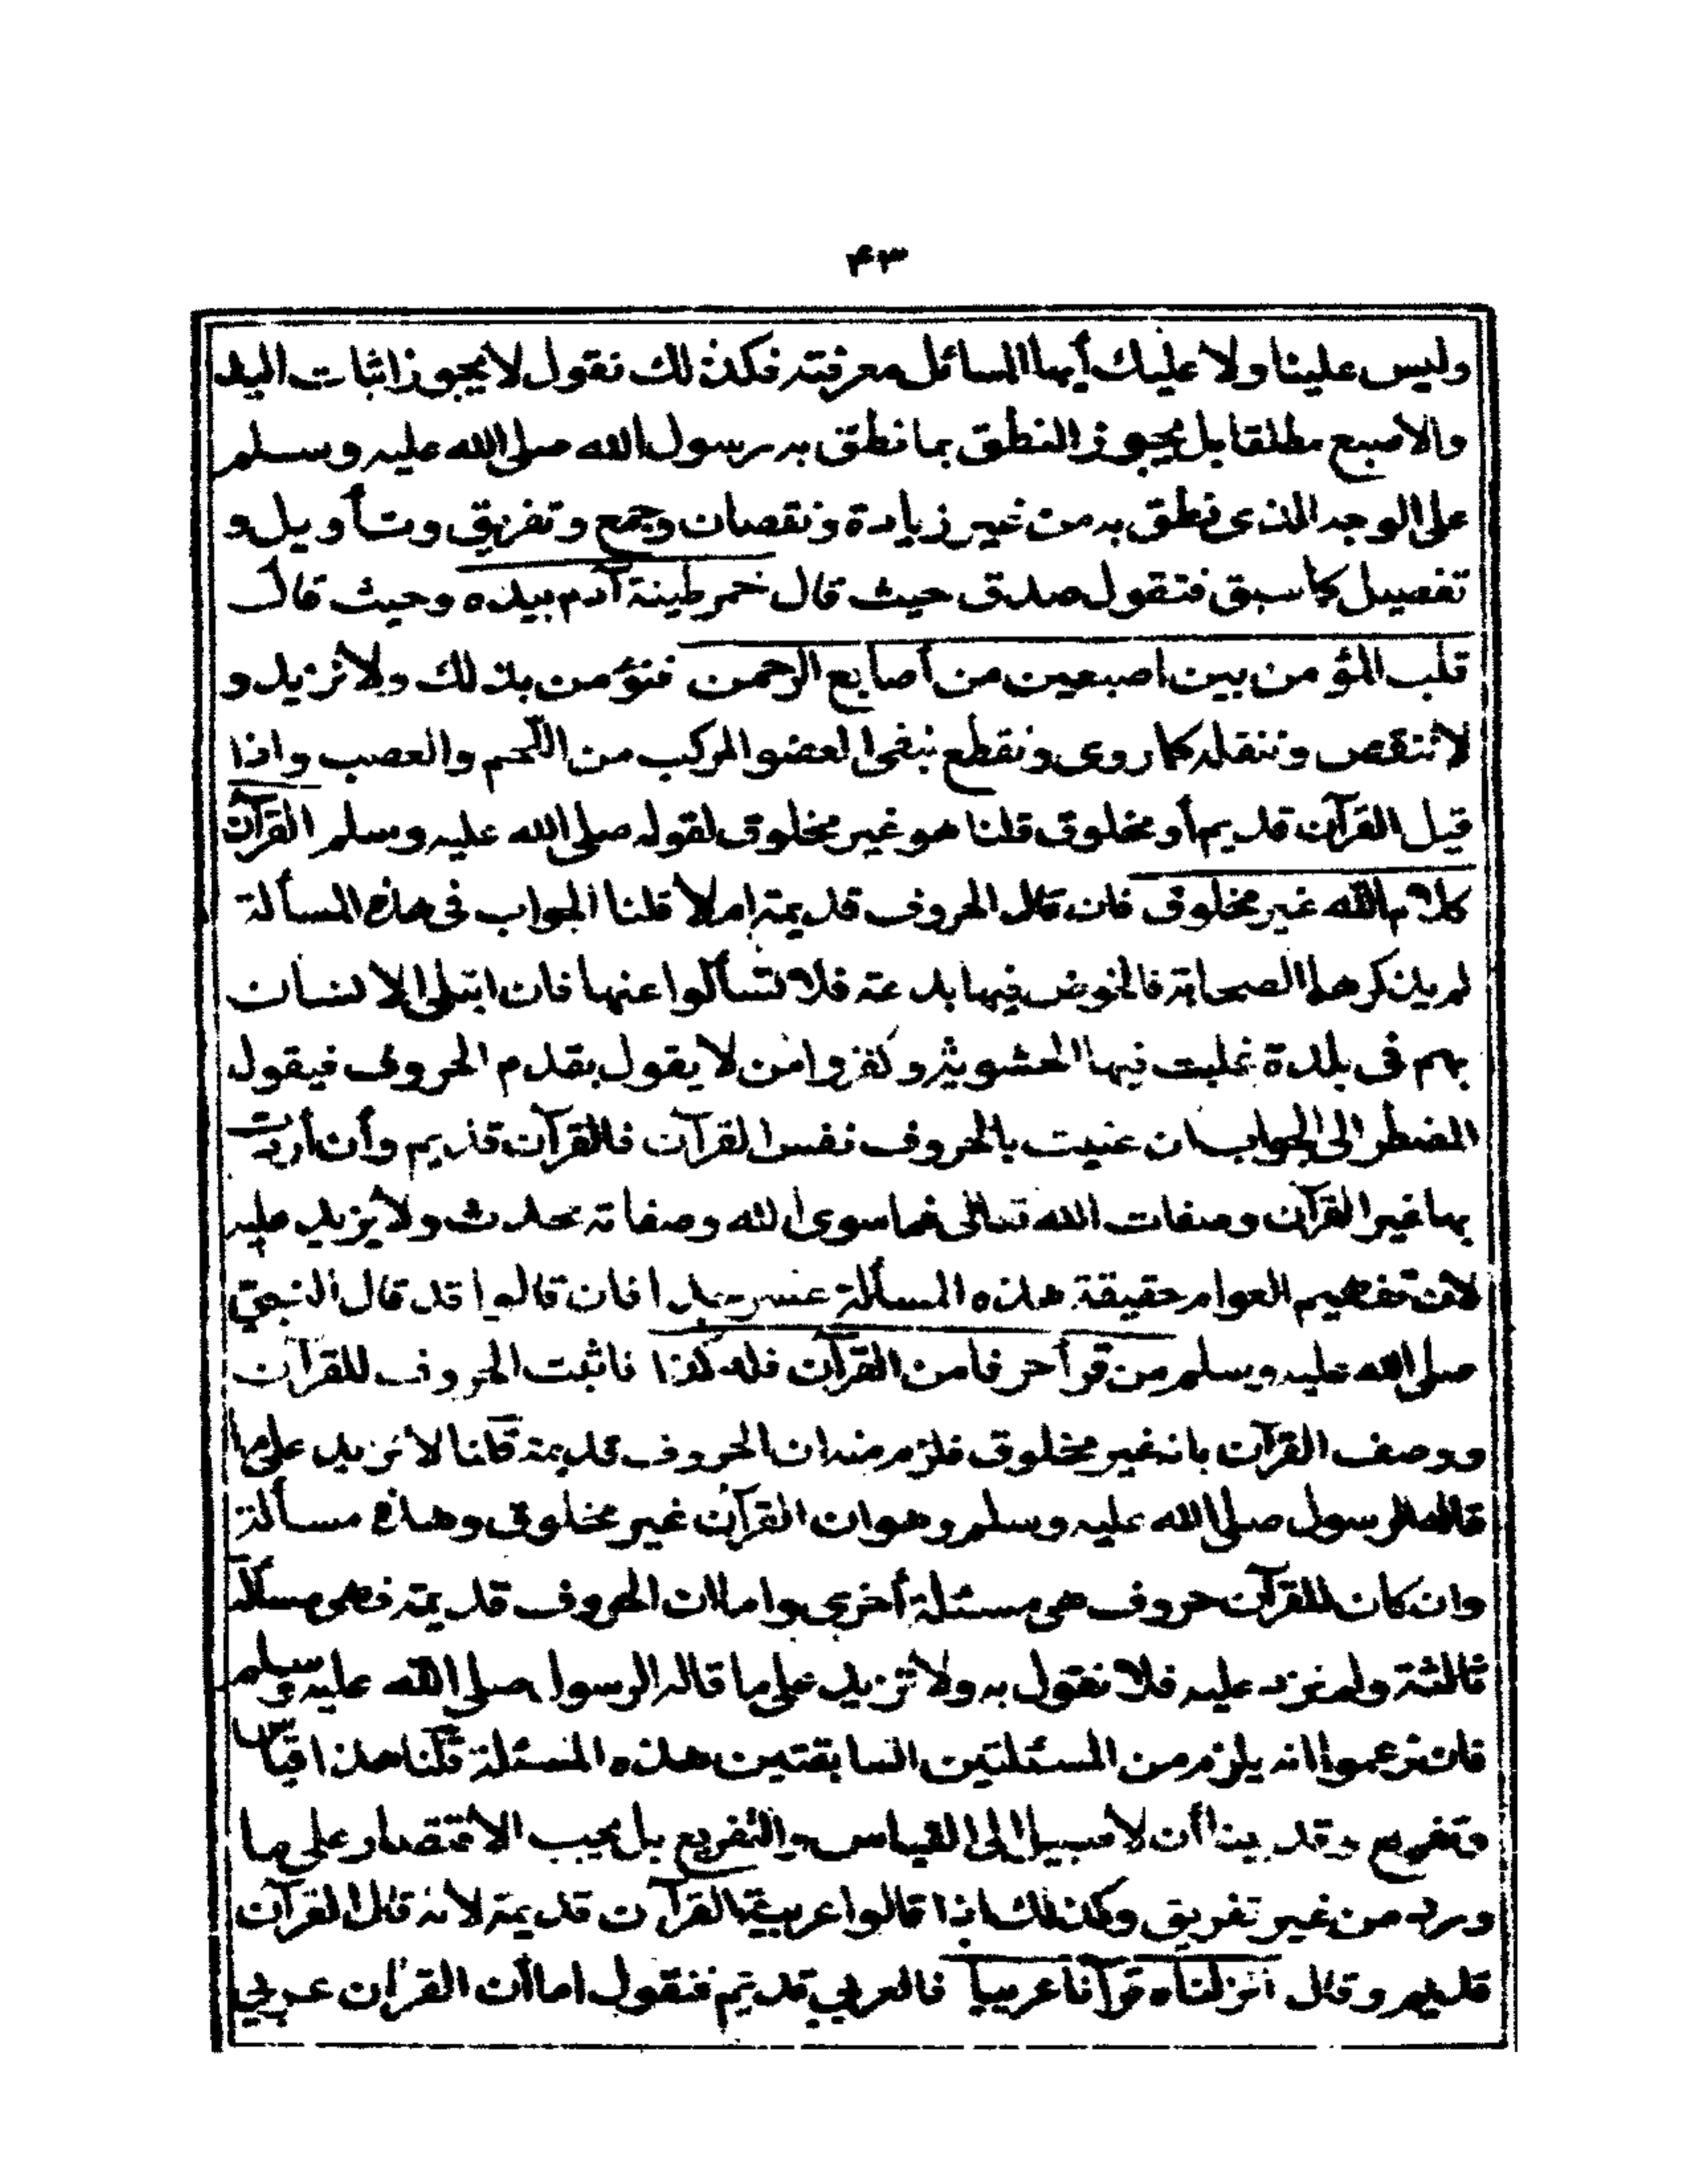 ۴۳
وليس علينا ولا عليك أيها السائل معرفته فكذلك نقول لا يجوز اثبات اليد
والاصبع مطلقا بل يجوز النطق بما نطق به رسول الله صلى الله عليه وسلم
على الوجه الذى نطق به من غير زيادة ونقصان وجمع وتفريق وتأويل و
تفصيل كما سبق فتقول صدق حيث قال خمر طينة آدم بيده وحيث قال
قلب المؤمن بين اصبعين من أصابع الرحمن فنؤمن بذلك ولا نزيد و
لا ننقص وننقله كما روى ونقطع بنفى العضو المركب من اللحم والعصب واذا
قيل القرآن قديم أو مخلوق قلنا هو غير مخلوق لقوله صلى الله عليه وسلم القرآن
كلام الله غير مخلوق فان قال الحروف قديمة ام لا قلنا الجواب فى هذه المسألة
لم يذكرها الصحابة فالخوض فيها بدعة فلا تسألوا عنها فان ابتلى الانسان
بهم فى بلدة غلبت فيها الحشوية وكفروا من لا يقول بقدم الحروف فيقول
المضطر الى الجواب ان عنيت بالحروف نفس القرآن فالقرآن قديم وأن أردت
بها غير القرآن وصفات الله تعالى فما سوى الله وصفاته محدث ولا يزيد عليه
لان تفهيم العوام حقيقة هذه المسألة عسر جدا فان قالوا قد قال النبى
صلى الله عليه وسلم من قرأ حرفا من القرآن فله كذا فاثبت الحروف للقرآن
ووصف القرآن بانه غير مخلوق فلزم منه ان الحروف قديمة قلنا لا نزيد على ما
قاله الرسول صلى الله عليه وسلم وهو ان القرآن غير مخلوق وهذه مسألة
وان كان للقرآن حروف هى مسئلة أخرى واما ان الحروف قديمة فهى مسألة
ثالثة ولم نزد عليه فلا نقول به ولا نزيد على ما قاله الرسول صلى الله عليه وسلم
فان زعموا انه يلزم من المسئلتين السابقتين هذه المسئلة قلنا هذا قياس
وتفريع وقد بينا أن لا سبيل الى القياس والتفريع بل يجب الاقتصار على ما
ورد من غير تفريق وكذلك اذا قالوا عربية القرآن قديمة لانه قال القرآن
قديم وقال أنزلناه قرآنا عربيا فالعربي قديم فنقول اما أن القران عربي